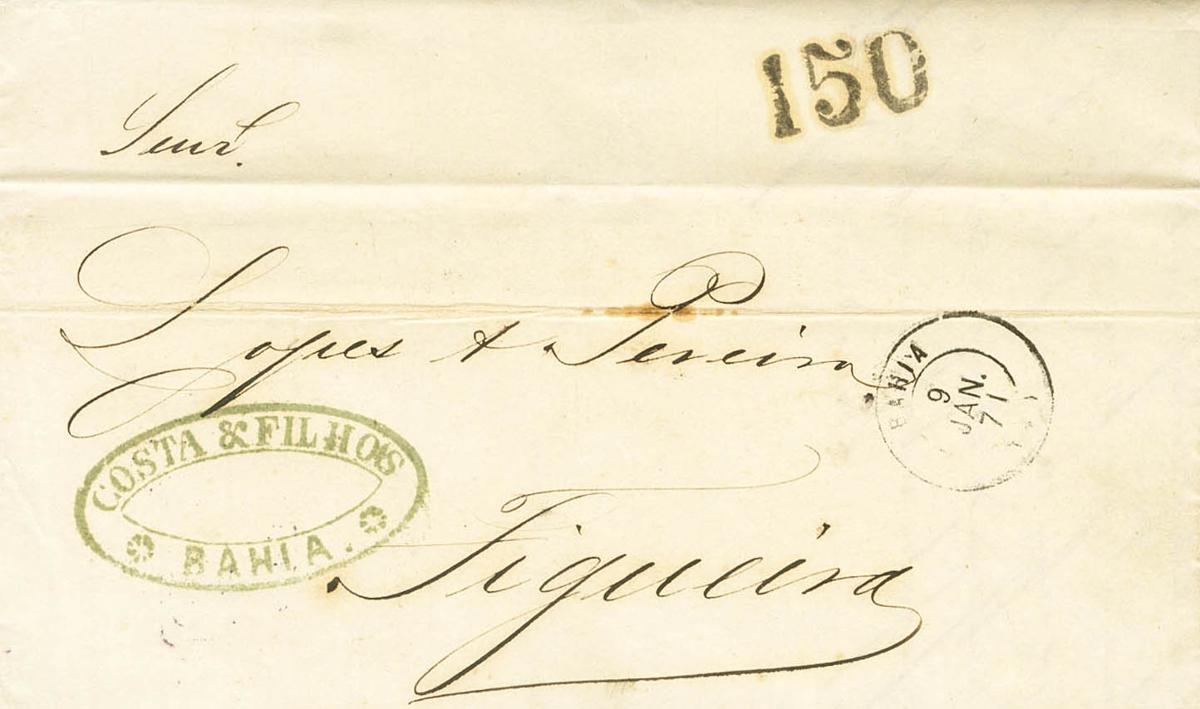 150
Senr.
Lopes & Pereira
BAHIA
9
JAN.
71
COSTA & FILHOS
BAHIA.
Figueira